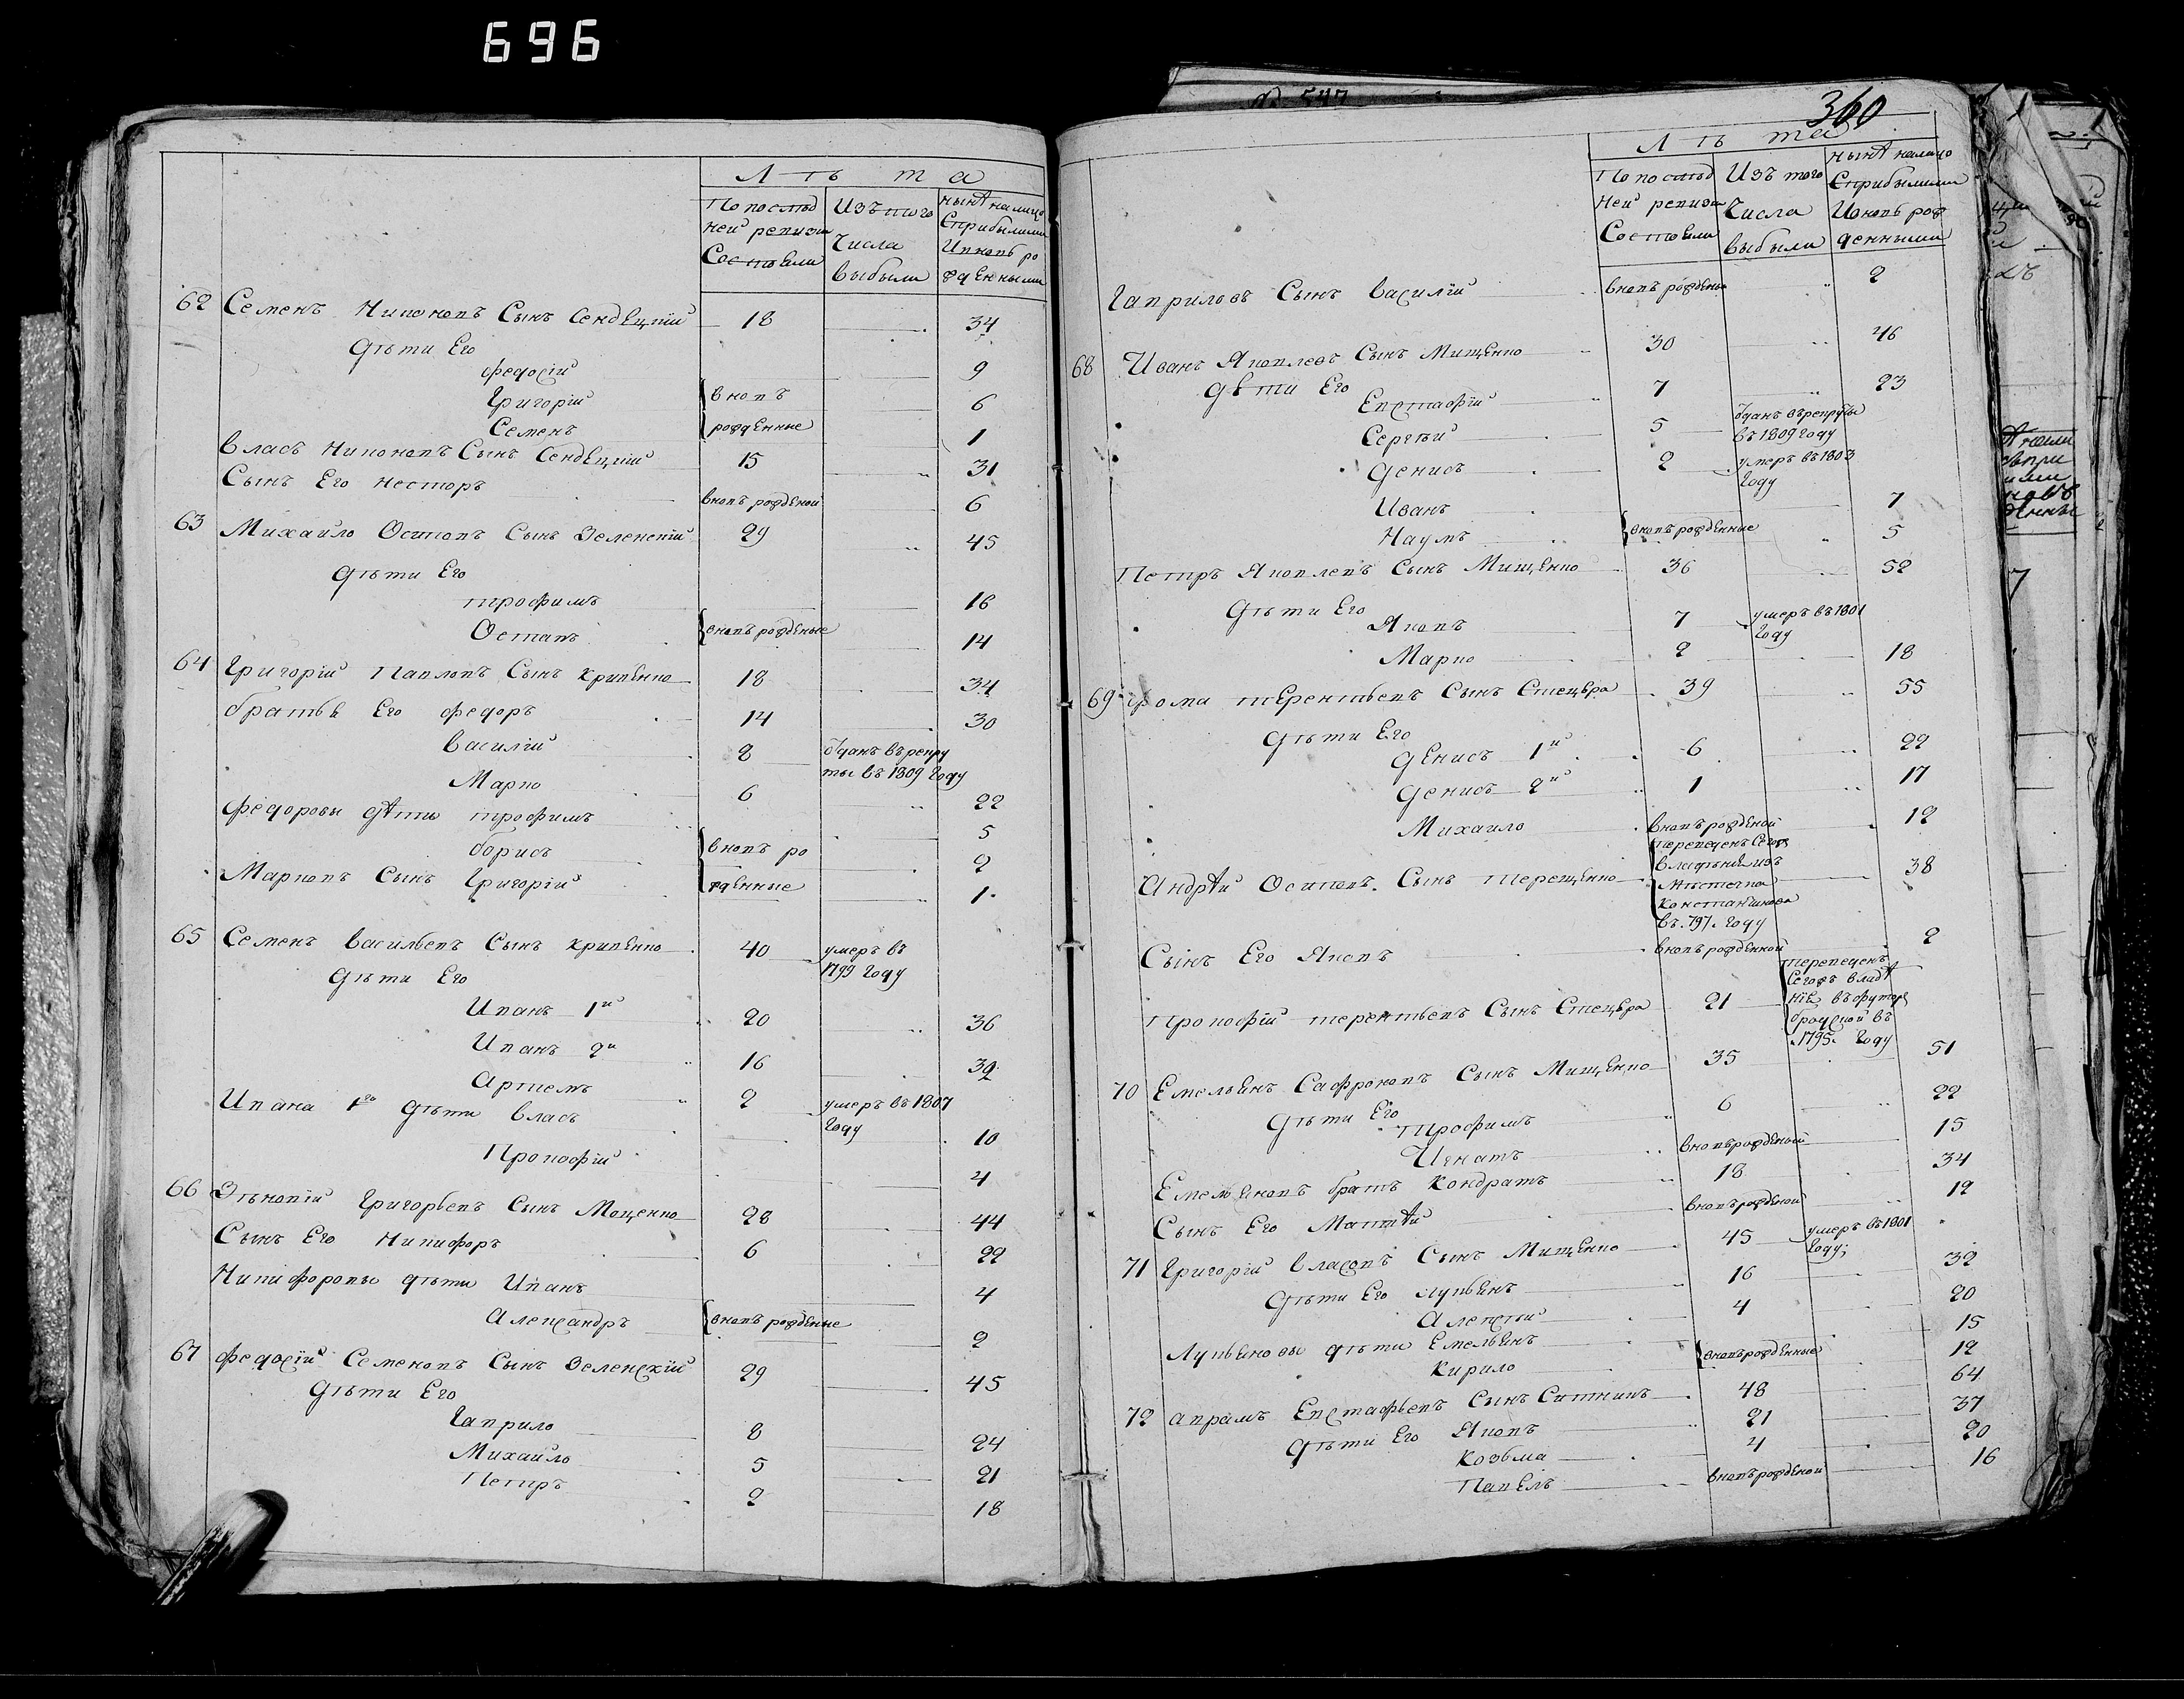 696
Лѣта
По послѣд Изъ того нынѣ на лицо
ней ревизіи числа Сприбылыми
Состояли выбыли Ивновь ро
жденными
62 Семенъ Никоновъ Сынъ Сендецкій 18 34
Дѣти Его
Федосій 9
Григорій вновь 6
Семенъ рожденные 1
Власъ Никоновъ Сынъ Сендецкій 15 31
Сынъ Его Несторъ вновь рожденой 6
63 Михайло Осиповъ Сынъ Зеленскій 29 45
Дѣти Его
Трофимъ 16
Остапъ вновь рожденые 14
64 Григорій Павловъ Сынъ Кривенко 18 34
братья Его Федоръ 14 30
Василій 2 Отданъ врекру
ты въ 1809 году
Марко 6 22
Федоровы дѣти Трофимъ 5
Борисъ вновь ро 2
Марковъ Сынъ Григорій жденные 1
65 Семенъ Васильевъ Сынъ Кривенко 40 умеръ въ
1799 году
Дѣти Его
Иванъ 1й 20 36
Иванъ 2й 16 32
Артемъ 2 умеръ въ 1807
году
Ивана 1го дѣти Власъ 10
Прокофій 4
66 Зѣновій Григорьевъ Сынъ Моценко 28 44
Сынъ Его Никифоръ 6 22
Никифоровы дѣти Иванъ 4
Александръ вновь рожденые 2
67 Федосій Семеновъ Сынъ Зеленскій 29 45
Дѣти Его
Гаврило 8 24
Михайло 5 21
Петръ 2 18
360
Лѣта
По послѣд Изъ того нынѣ налицо
ней ревизіи числа Сприбылыми
Состояли выбыли Ивновь рож
денными
Гавриловъ Сынъ Василій вновь рожденъ 2
68 Иванъ Яковлевъ Сынъ Мищенко 30 46
Дѣти Его
Евстафій 7 23
Сергѣй 5 Отданъ врекруты
въ 1809 году
Денисъ 2 умеръ въ 1803
году
Иванъ 7
Наумъ вновь рожденные 5
Петръ Яковлевъ Сынъ Мищенко 36 52
Дѣти Его
Яковъ 7 умеръ въ 1801
году
Марко 2 18
69 Фома Терентьевъ Сынъ Стецюра 39 55
Дѣти Его
Денисъ 1й 6 22
Денисъ 2й 1 17
Михайло вновь рожденой 12
Андрѣй Осиповъ Сынъ Терещенко переведенъ Сегожъ
владѣнія изъ
мѣстечка
Константинова
въ 797 году 38
Сынъ Его Яковъ вновь рожденной 2
Прокофій Терентьевъ Сынъ Стецюра 21 переведенъ
Сегожъ владѣ
ніе въ футоръ
бродской въ
1795 году
70 Емельянъ Сафроновъ Сынъ Мищенко 35 51
Дѣти Его
Трофимъ 6 22
Игнатъ вновь рожденой 15
Емельяновъ братъ Кондратъ 18 34
Сынъ Его Матвѣй вновь рожденой 12
71 Григорій Власовъ Сынъ Мищенко 45 умеръ въ 1801
году;
Дѣти Его Лукьянъ 16 32
Алексѣй 4 20
Лукьяновы дѣти Емельянъ 15
Кирило вновь рожденные 12
72 Аврамъ Евстафьевъ Сынъ Ситникъ 48 64
Дѣти Его Яковъ 21 37
Козьма 4 20
Павелъ вновь рожденой 16